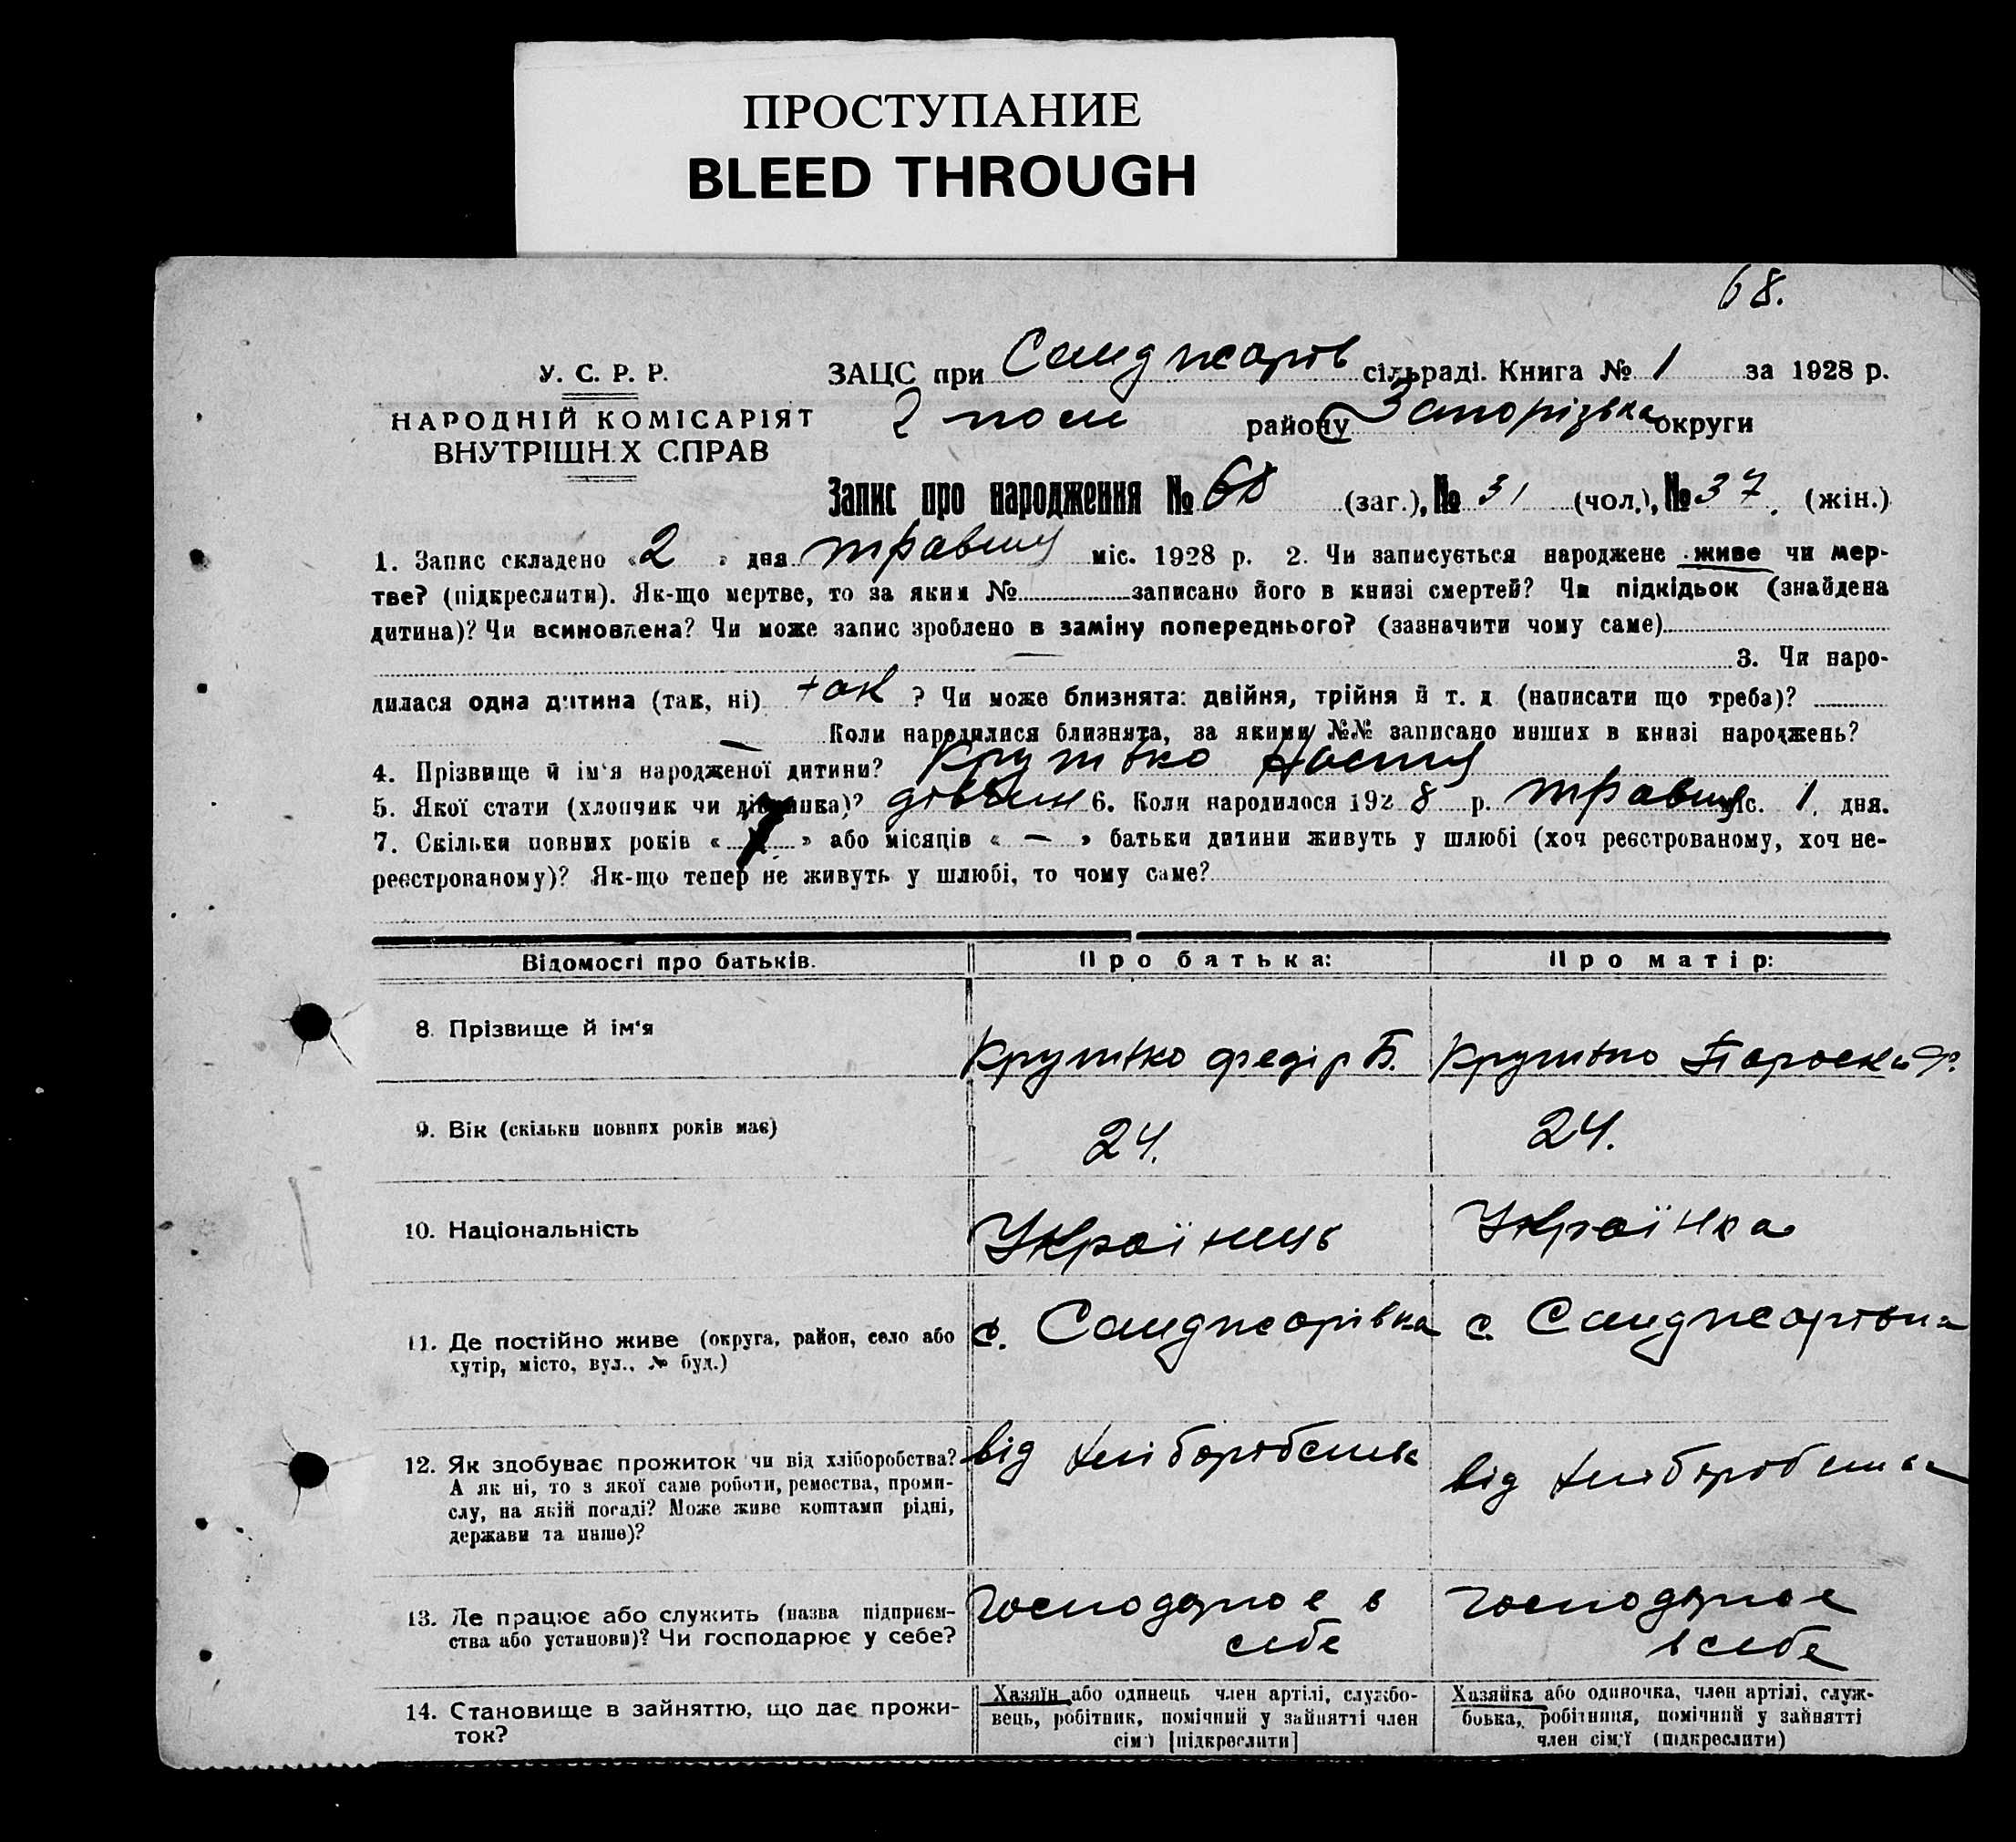 ПРОСТУПАНИЕ
BLEED THROUGH
68.
У. С. Р. Р.
НАРОДНІЙ КОМІСАРІЯТ
ВНУТРІШНІХ СПРАВ
ЗАЦС при Санджарів сільраді. Книга № 1 за 1928 р.
району Запорізька округи
Запис про народження № 68 (заг.), № 31 (чол.), № 37. (жін.)
1. Запис складено «2» дня травня міс. 1928 р. 2. Чи записується народжене живе чи мер-
тве? (підкреслити). Як-що мертве, то за яким № записано його в книзі смертей? Чи підкідьок (знайдена
дитина)? Чи всиновлена? Чи може запис зроблено в заміну попереднього? (зазначити чому саме)
3. Чи наро-
дилася одна дитина (так, ні) так ? Чи може близнята: двійня, трійня й т. д (написати що треба)?
— Коли народилися близнята, за якими №№ записано инших в книзі народжень?
4. Прізвище й ім'я народженої дитини? Крутько
5. Якої стати (хлопчик чи дівчинка)? дівчин 6. Коли народилося 1928 р. травня міс. 1. дня.
7. Скільки повних років « » або місяців « — » батьки дитини живуть у шлюбі (хоч реєстрованому, хоч не-
реєстрованому)? Як-що тепер не живуть у шлюбі, то чому саме?
Відомості про батьків.
Про батька:
Про матір:
8. Прізвище й ім'я
Крутько Федір Б.
Крутько Параска
9. Вік (скільки повних років має)
24.
24.
10. Національність
Українець
Українка
11. Де постійно живе (округа, район, село або
хутір, місто, вул., № буд.)
с. Санджарівка
с. Санджарівка
12. Як здобуває прожиток чи від хліборобства?
А як ні, то з якої саме роботи, ремества, проми-
слу, на якій посаді? Може живе коштами рідні,
держави та инше)?
від хліборобства
від хліборобства
13. Де працює або служить (назва підприєм-
ства або установи)? Чи господарює у себе?
господарює в
себе
господарює
в себе
14. Становище в зайняттю, що дає прожи-
ток?
Хазяїн або одинець член артілі, службо-
вець, робітник, помічний у зайнятті член
сім'ї [підкреслити]
Хазяйка або одиночка, член артілі, служ-
бовка, робітниця, помічний у зайнятті
член сім'ї (підкреслити)